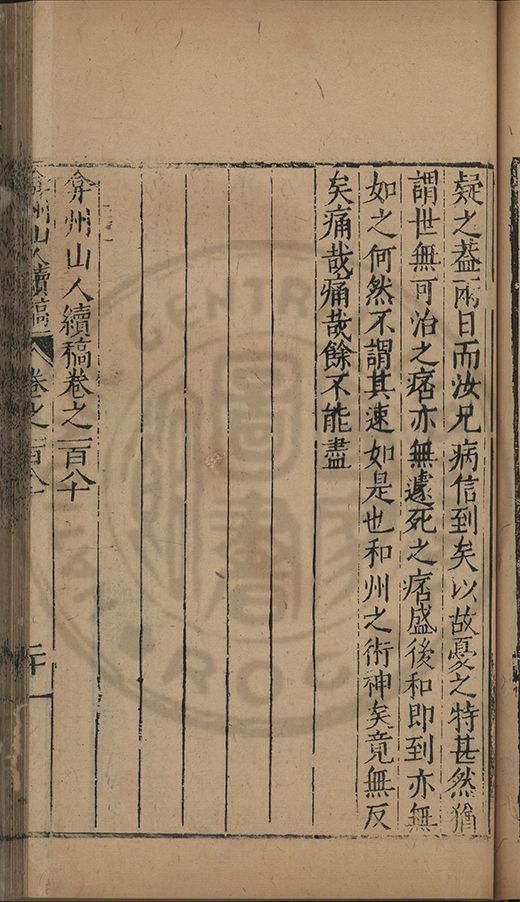 疑之葢兩日而汝兄病信到矣以故憂之特甚然猶
謂世無可治之痞亦無遽死之痞盛後和即到亦無
如之何然不謂其速如是也和州之術神矣竟無反
矣痛哉痛哉餘不能盡
弇州山人續稿卷之一百八十
弇州山人續稿 卷之一百八十